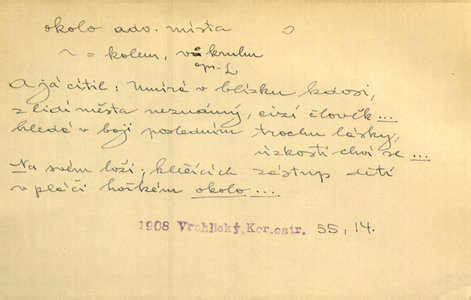 okolo adv. místa
~ = kolem, v kruhu
A já cítil: Umírá v blízku kdosi,
z lidí města neznámý, cizí člověk...
hledá v boji posledním trochu lásky,
úzkostí chví se...
Na svém loži; klečících zástup dětí
v pláči hořkém okolo....
1908 Vrchlický, Kor. ostr. 55, 14.